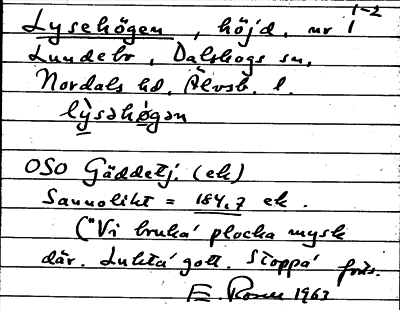 1-2
Lysehögen, höjd, nr 1
Lundebr, Dalskogs sn,
Nordals hd. Älvsb. l.
lỳsəhøgən
OSO Gäddetj. (ek)
Sannolikt = 184,7 ek.
("Vi bruka' plocka mysk
där. Lukta' gott. Stoppa' forts.
E. Rosen 1963